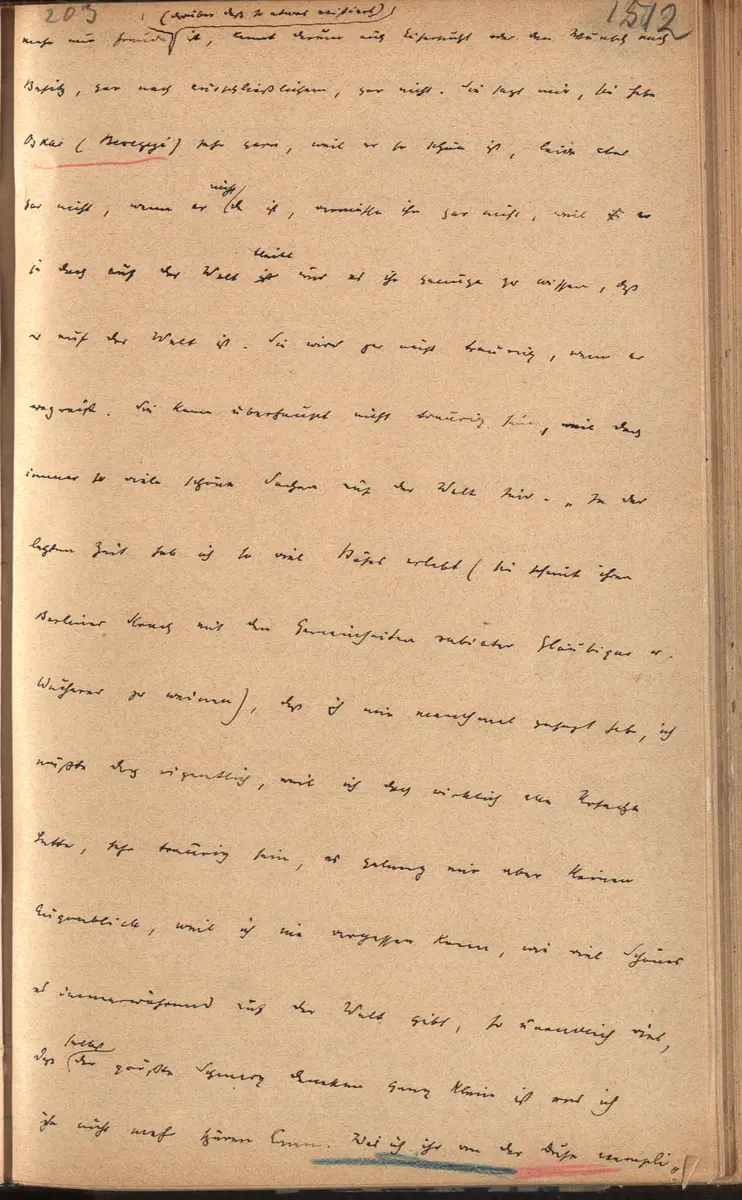 203
1512
(darüber daß so etwas existiert)
mehr nur Freude ist, kennt darum auch Eifersucht oder den Wunsch nach
Besitz, gar nach ausschließlichem, gar nicht. Sie sagt mir, sie habe
Oskar ( ) sehr gern, weil er so schön ist, leide aber
nicht
gar nicht, wenn er da ist, vermisse ihn gar nicht, weil er
bleibt
ja doch auf der Welt ist und es ihr genüge zu wissen, daß
er auf der Welt ist. Sie wird gar nicht traurig, wenn er
wegreist. Sie kann überhaupt nicht traurig sein, weil doch
immer so viele schöne Sachen auf der Welt sind. „In der
letzten Zeit hab ich so viel Böses erlebt (sie scheint ihren
Berliner Krach mit den Gemeinheiten rabiater Gläubiger u.
Wucherer zu meinen), daß ich mir manchmal gesagt habe, ich
müßte doch eigentlich, weil ich doch wirklich alle Ursache
hatte, sehr traurig sein, es gelang mir aber keinen
Augenblick, weil ich nie vergessen kann, wie viel Schönes
es immerwährend auf der Welt gibt, so unendlich viel,
selbst
daß der größte Schmerz daneben ganz klein ist und ich
ihn nicht mehr spüren kann. Was ich ihr von der Duse exempli-